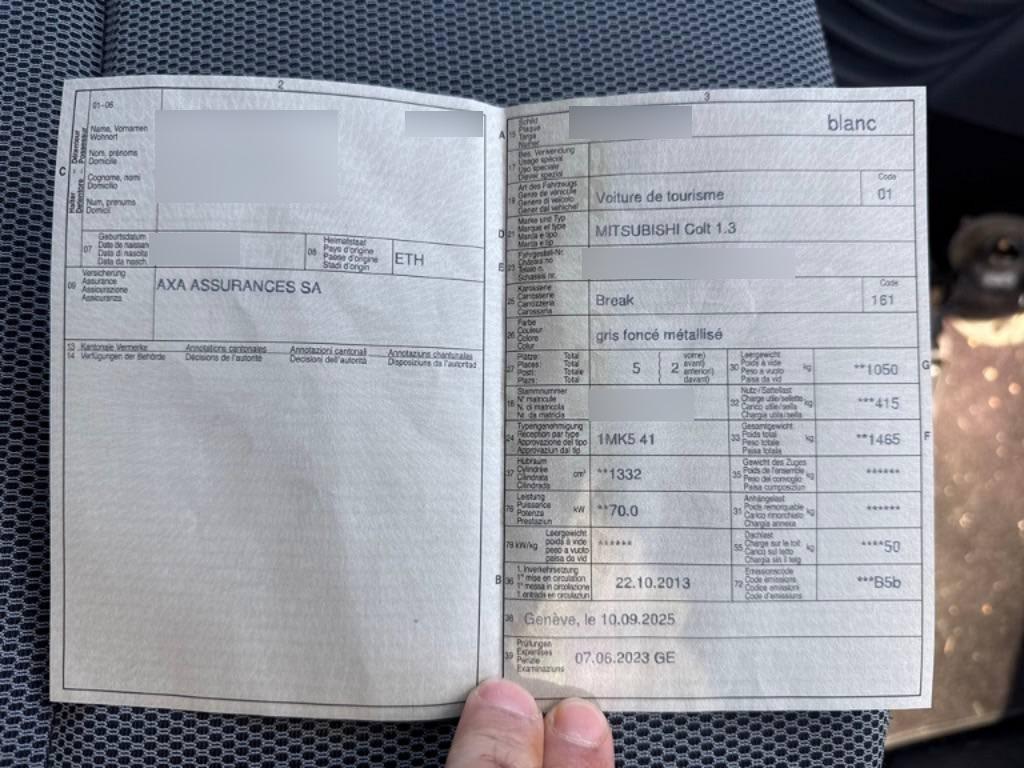 2
01-06
C
Halter
Détenteur
Detentore
Possessur
Name, Vornamen
Wohnort
Nom, prénoms
Domicile
Cognome, nomi
Domicilio
Num, prenums
Domicil
07
Geburtsdatum
Date de naissan
Data di nascita
Data da nasch.
08
Heimatstaat
Pays d'origine
Paese d'origine
Stadi d'origin
ETH
09
Versicherung
Assurance
Assicurazione
Assicuranza
AXA ASSURANCES SA
13 Kantonale Vermerke Annotations cantonales Annotazioni cantonali Annotaziuns chantunalas
14 Verfügungen der Behörde Décisions de l'autorité Decisioni dell'autorità Disposiziuns da l'autoritad
3
A 15
Schild
Plaque
Targa
blanc
17
Bes. Verwendung
Usage spécial
Uso speciale
Diever spezial
19
Art des Fahrzeugs
Genre de véhicule
Genere di veicolo
Gener dal vehichel
Voiture de tourisme
Code
01
D 21
Marke und Typ
Marque et type
Marca e tipo
Marca e tip
MITSUBISHI Colt 1.3
E 23
Fahrgestell-Nr.
Châssis no
Telaio n.
Schassis nr.
25
Karosserie
Carrosserie
Carrozzeria
Carossaria
Break
Code
161
26
Farbe
Couleur
Colore
Colur
gris foncé métallisé
27
Plätze: Total
Places: Total
Posti: Totale
Plazs: Total
5 { 2
vorne)
avant)
anteriori)
davant)
30
Leergewicht
Poids à vide
Peso a vuoto
Paisa da vid
kg
**1050
G
18
Stammnummer
N° matricule
N. di matricola
Nr. da matricla
32
Nutz-/Sattellast
Charge utile/sellette
Carico utile/sella
Chargia utila/sella
kg
***415
24
Typengenehmigung
Réception par type
Approvazione del tipo
Approvaziun dal tip
1MK5 41
33
Gesamtgewicht
Poids total
Peso totale
Paisa totala
kg
**1465
F
37
Hubraum
Cylindrée
Cilindrata
Cilindrada
cm³
**1332
35
Gewicht des Zuges
Poids de l'ensemble
Peso del convoglio
Paisa cumposiziun
kg
******
76
Leistung
Puissance
Potenza
Prestaziun
kW
**70.0
31
Anhängelast
Poids remorquable
Carico rimorchiato
Chargia annexa
kg
******
78 kW/kg
Leergewicht
poids à vide
peso a vuoto
paisa da vid
******
55
Dachlast
Charge sur le toit
Carico sul tetto
Chargia sin il tetg
kg
****50
B 36
1. Inverkehrsetzung
1re mise en circulation
1a messa in circolazione
1. entrada en circulaziun
22.10.2013
72
Emissionscode
Code émissions
Codice emissioni
Code d'emissiuns
***B5b
38
Genève, le 10.09.2025
39
Prüfungen
Expertises
Perizie
Examinaziuns
07.06.2023 GE